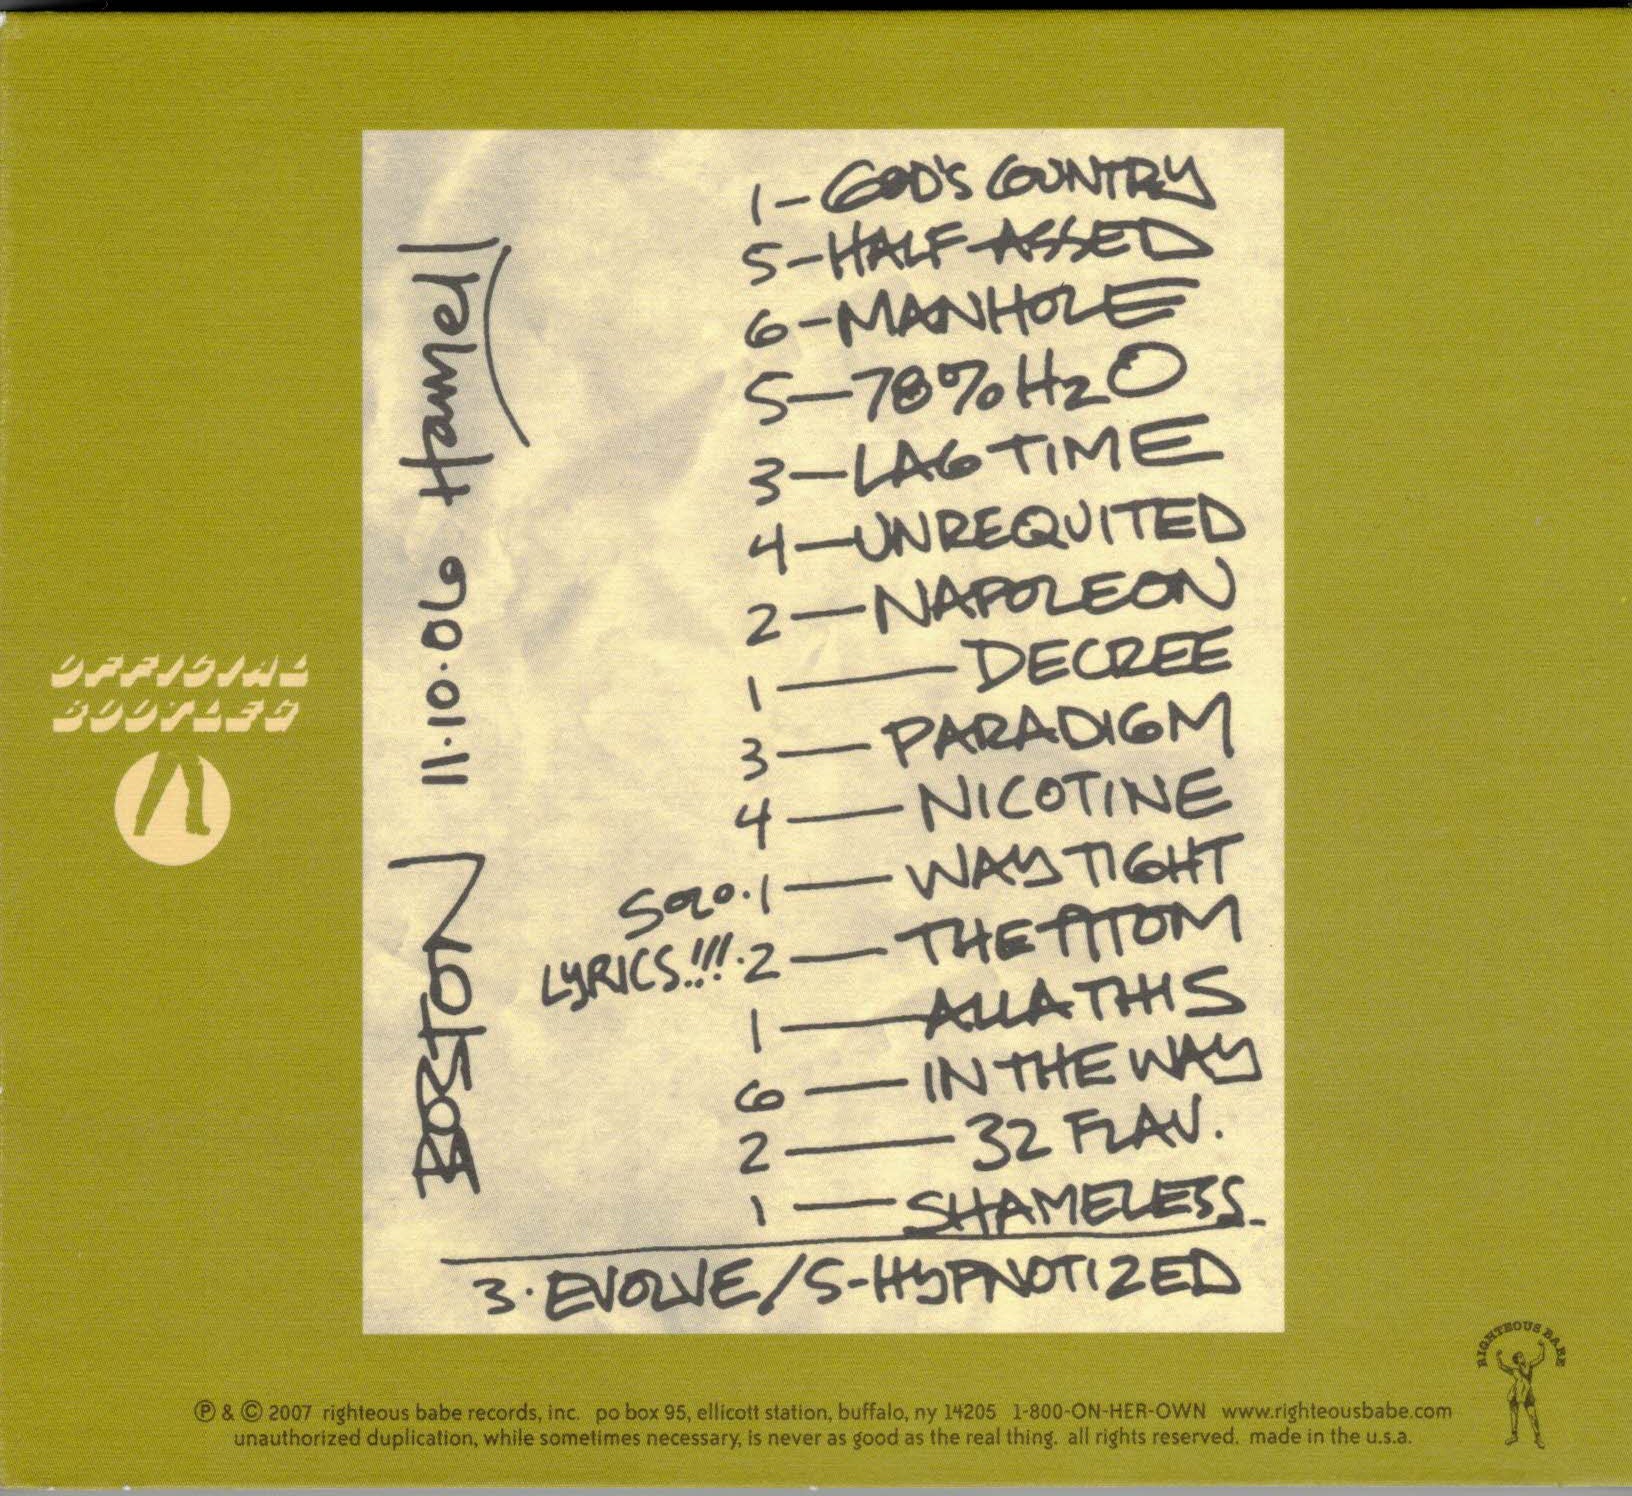 1-GOD'S COUNTRY
5-HALF-ASSED
6-MANHOLE
5-78% H2O
3-LAG TIME
4-UNREQUITED
2-NAPOLEON
1-DECREE
3-PARADIGM
4-NICOTINE
SOLO.1-WAY TIGHT
LYRICS!!!.2-THE ATOM
1-ALLA THIS
6-IN THE WAY
2-32 FLAV.
1-SHAMELESS
3.EVOLVE/5-HYPNOTIZED
BOSTON 11.10.06 Hamel
OFFICIAL
BOOTLEG
RIGHTEOUS BABE
℗ & © 2007 righteous babe records, inc. po box 95, ellicott station, buffalo, ny 14205 1-800-ON-HER-OWN www.righteousbabe.com
unauthorized duplication, while sometimes necessary, is never as good as the real thing. all rights reserved. made in the u.s.a.